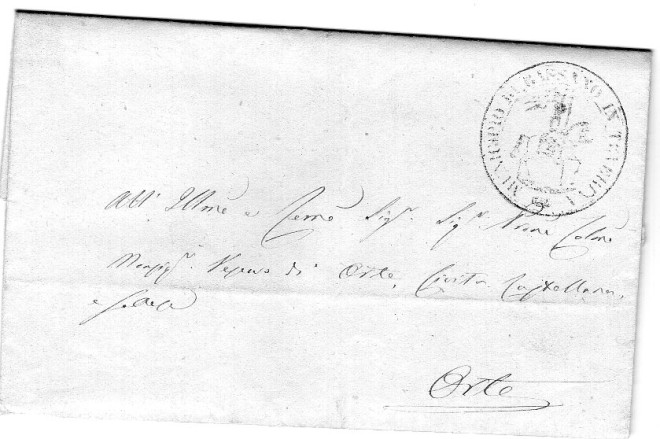 MUNICIPIO DI BASSANO IN TEVERINA
All' Illmo e Revmo Sigr. Sigr. Prne Colmo
Monsigr. Vescovo di Orte, Civita Castellana,
e
Orte